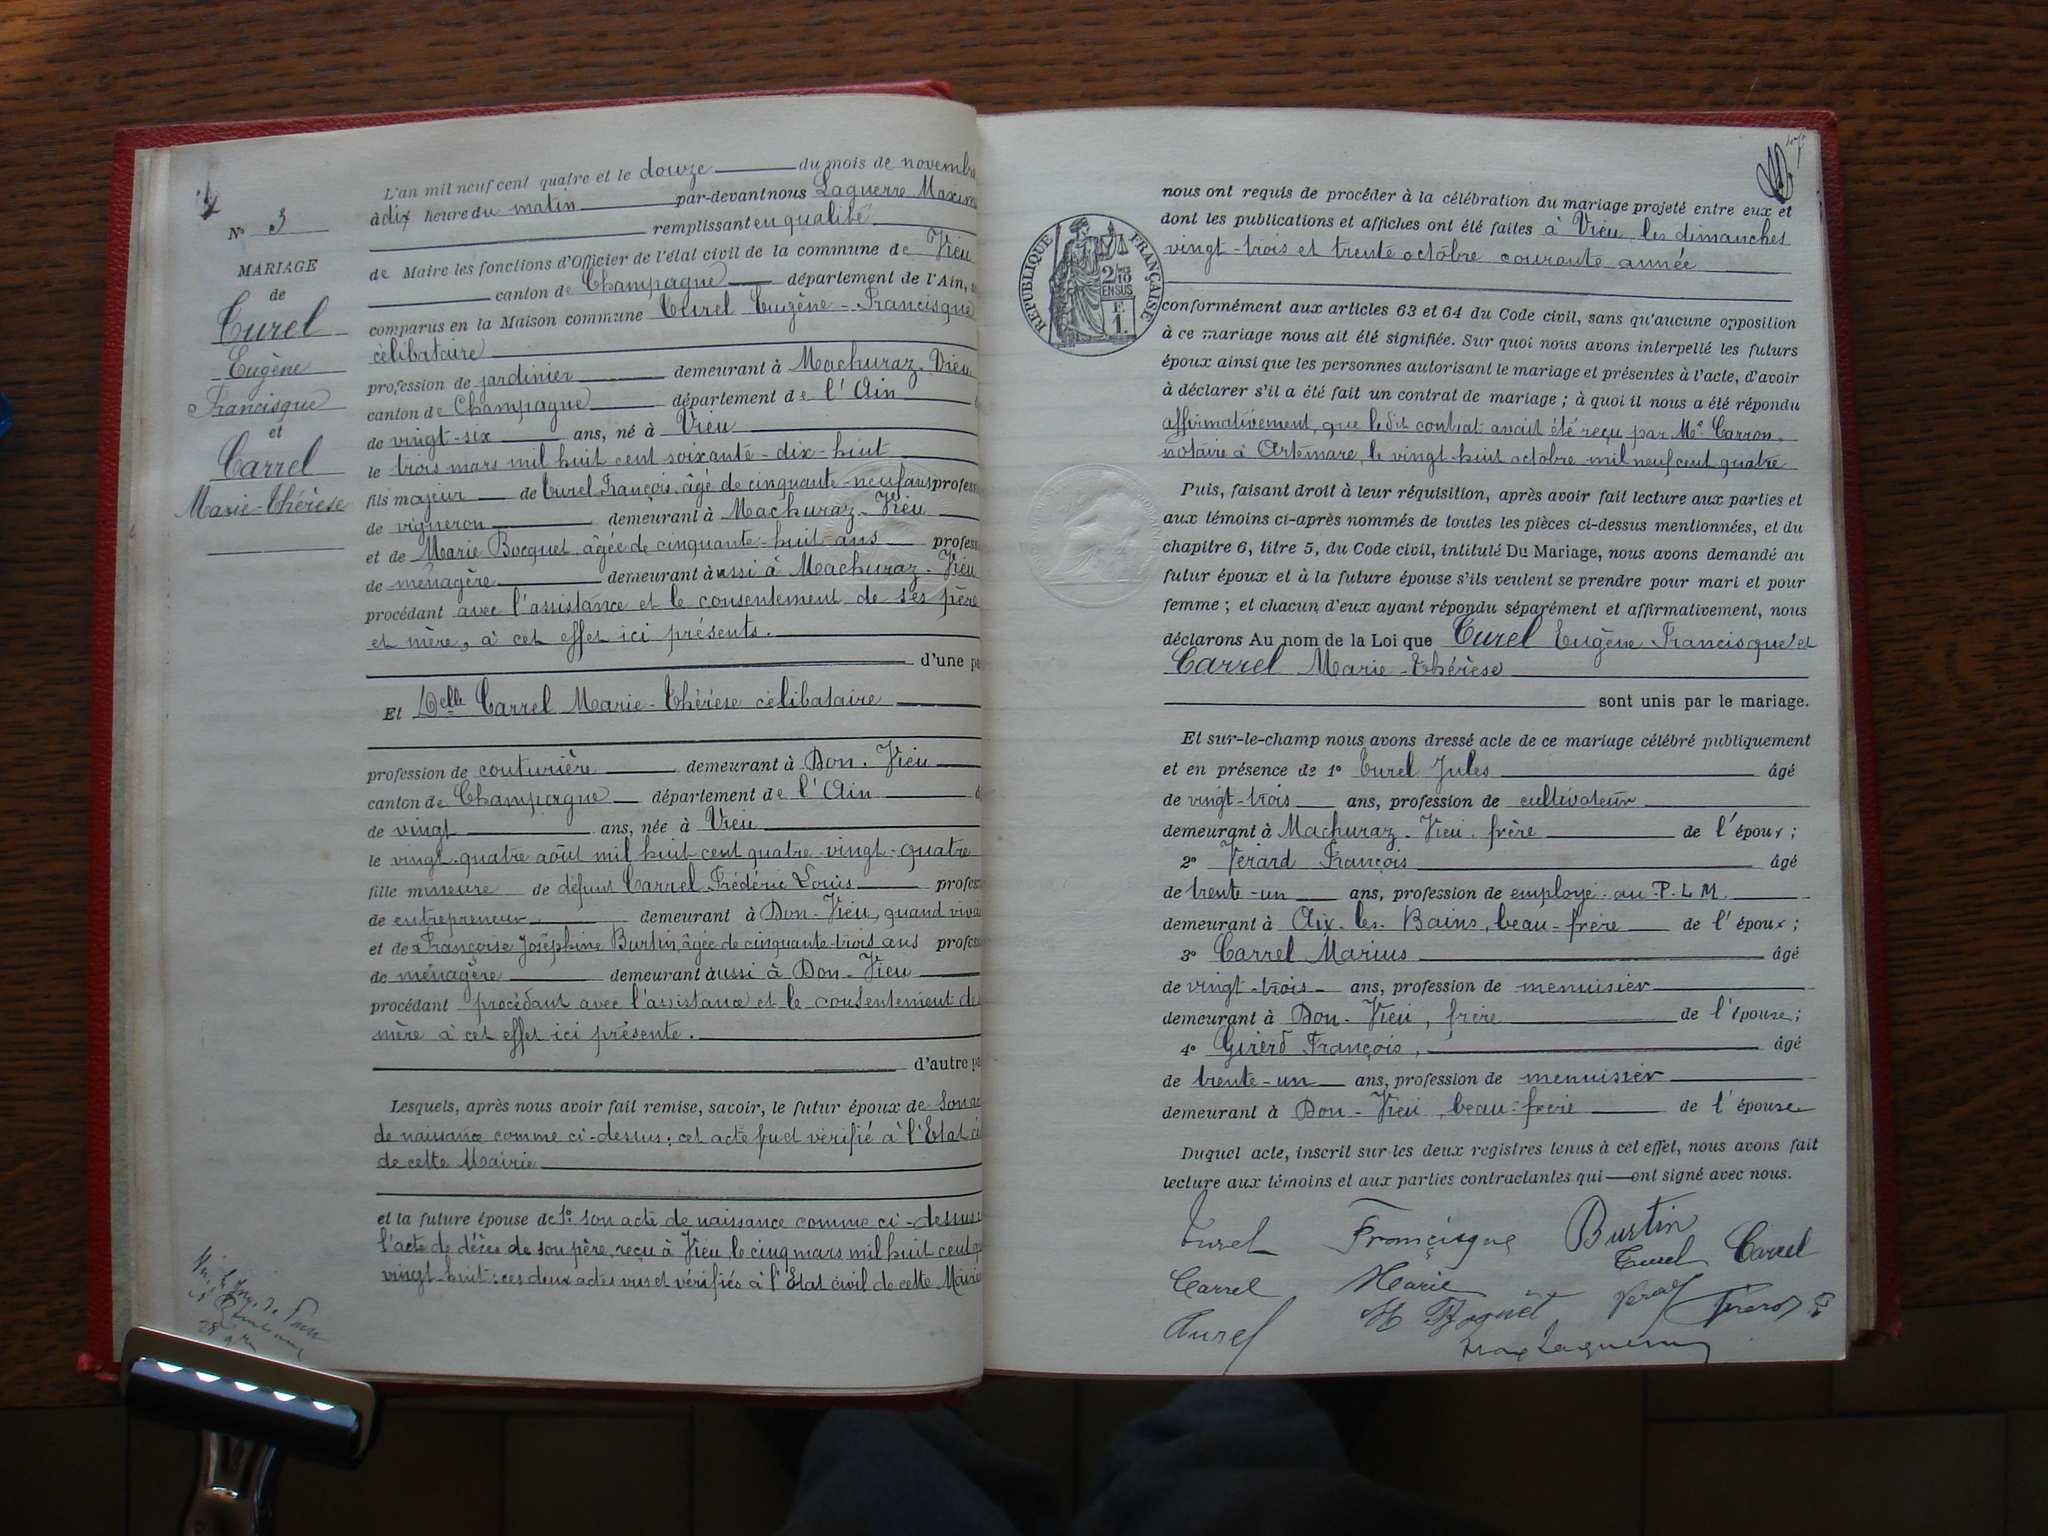 L'an mil neuf cent quatre et le douze du mois de novembre
à dix heure du matin par-devant nous Laguerre Maxime
remplissant en qualité
de Maire les fonctions d'Officier de l'état civil de la commune de Vieu
canton de Champagne département de l'Ain,
comparus en la Maison commune Curel Eugène-Francisque
célibataire
profession de jardinier demeurant à Machuraz-Vieu
canton de Champagne département de l'Ain
de vingt-six ans, né à Vieu
le trois mars mil huit cent soixante-dix-huit
fils majeur de Curel François, âgé de cinquante-neuf ans profess
de vigneron demeurant à Machuraz-Vieu
et de Marie Bocquet, âgée de cinquante-huit ans profess
de ménagère demeurant aussi à Machuraz-Vieu
procédant avec l'assistance et le consentement de ses père
et mère, à cet effet ici présents.
d'une pa
Et Delle Carrel Marie-Thérèse célibataire
profession de couturière demeurant à Don-Vieu
canton de Champagne département de l'Ain
de vingt ans, née à Vieu
le vingt-quatre août mil huit cent quatre-vingt-quatre
fille mineure de défunt Carrel Frédéric Louis profess
de entrepreneur demeurant à Don-Vieu, quand viva
et de Françoise Joséphine Burtin, âgée de cinquante-trois ans profess
de ménagère demeurant aussi à Don-Vieu
procédant procédant avec l'assistance et le consentement de
mère à cet effet ici présente.
d'autre pa
Lesquels, après nous avoir fait remise, savoir, le futur époux de son ac
de naissance comme ci-dessus; cet acte fut vérifié à l'Etat ci
de cette Mairie
et la future épouse de 1° son acte de naissance comme ci-dessus;
l'acte de décès de son père, reçu à Vieu, le cinq mars mil huit cent qu
vingt-huit: ces deux actes vus et vérifiés à l'Etat civil de cette Mairie
N° 3
MARIAGE
de
Curel
Eugène
Francisque
et
Carrel
Marie-Thérèse
nous ont requis de procéder à la célébration du mariage projeté entre eux et
dont les publications et affiches ont été faites à Vieu, les dimanches
vingt-trois et trente octobre courante année
RÉPUBLIQUE FRANÇAISE
2/10
EN SUS
F.
1.
conformément aux articles 63 et 64 du Code civil, sans qu'aucune opposition
à ce mariage nous ait été signifiée. Sur quoi nous avons interpellé les futurs
époux ainsi que les personnes autorisant le mariage et présentes à l'acte, d'avoir
à déclarer s'il a été fait un contrat de mariage; à quoi il nous a été répondu
affirmativement, que ledit contrat avait été reçu par Me Carron,
notaire à Artemare, le vingt-huit octobre mil neuf cent quatre
Puis, faisant droit à leur réquisition, après avoir fait lecture aux parties et
aux témoins ci-après nommés de toutes les pièces ci-dessus mentionnées, et du
chapitre 6, titre 5, du Code civil, intitulé Du Mariage, nous avons demandé au
futur époux et à la future épouse s'ils veulent se prendre pour mari et pour
femme; et chacun d'eux ayant répondu séparément et affirmativement, nous
déclarons Au nom de la Loi que Curel Eugène Francisque et
Carrel Marie-Thérèse
sont unis par le mariage.
Et sur-le-champ nous avons dressé acte de ce mariage célébré publiquement
et en présence de 1° Curel Jules âgé
de vingt-trois ans, profession de cultivateur
demeurant à Machuraz-Vieu, frère de l'époux;
2° Vérard François âgé
de trente-un ans, profession de employé au P.L.M.
demeurant à Aix-les-Bains, beau-frère de l'époux;
3° Carrel Marius âgé
de vingt-trois ans, profession de menuisier
demeurant à Don-Vieu, frère de l'épouse;
4° Girerd François, âgé
de trente-un ans, profession de menuisier
demeurant à Don-Vieu, beau-frère de l'épouse
Duquel acte, inscrit sur les deux registres tenus à cet effet, nous avons fait
lecture aux témoins et aux parties contractantes qui ont signé avec nous.
Curel Francisque Burtin
Curel Carrel
Carrel Marie
Curel
Max Laguerre